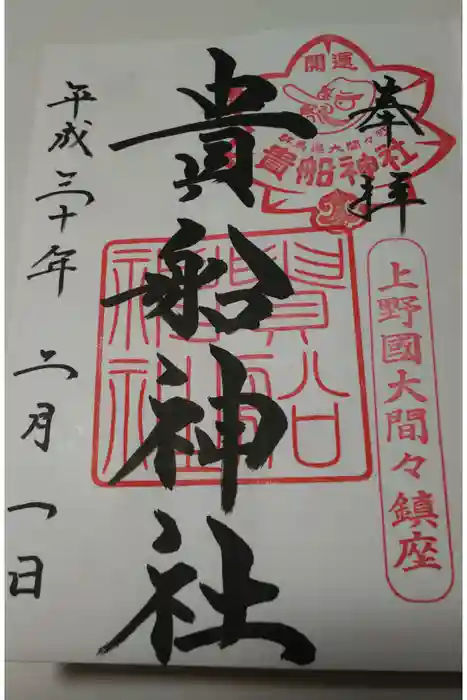 奉拝
開運
群馬県大間々町
貴船神社
上野國大間々鎮座
貴船神社
平成三十年 二月 一日